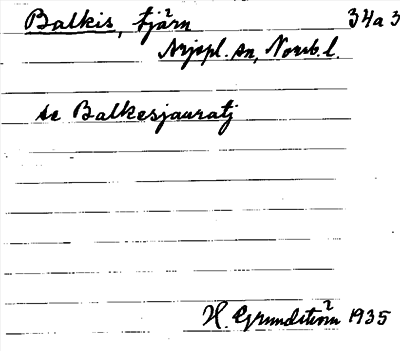 Balkis, tjärn 34a3
Arjepl. sn, Norrb. l.
se Balkesjauratj
H. Grundström 1935